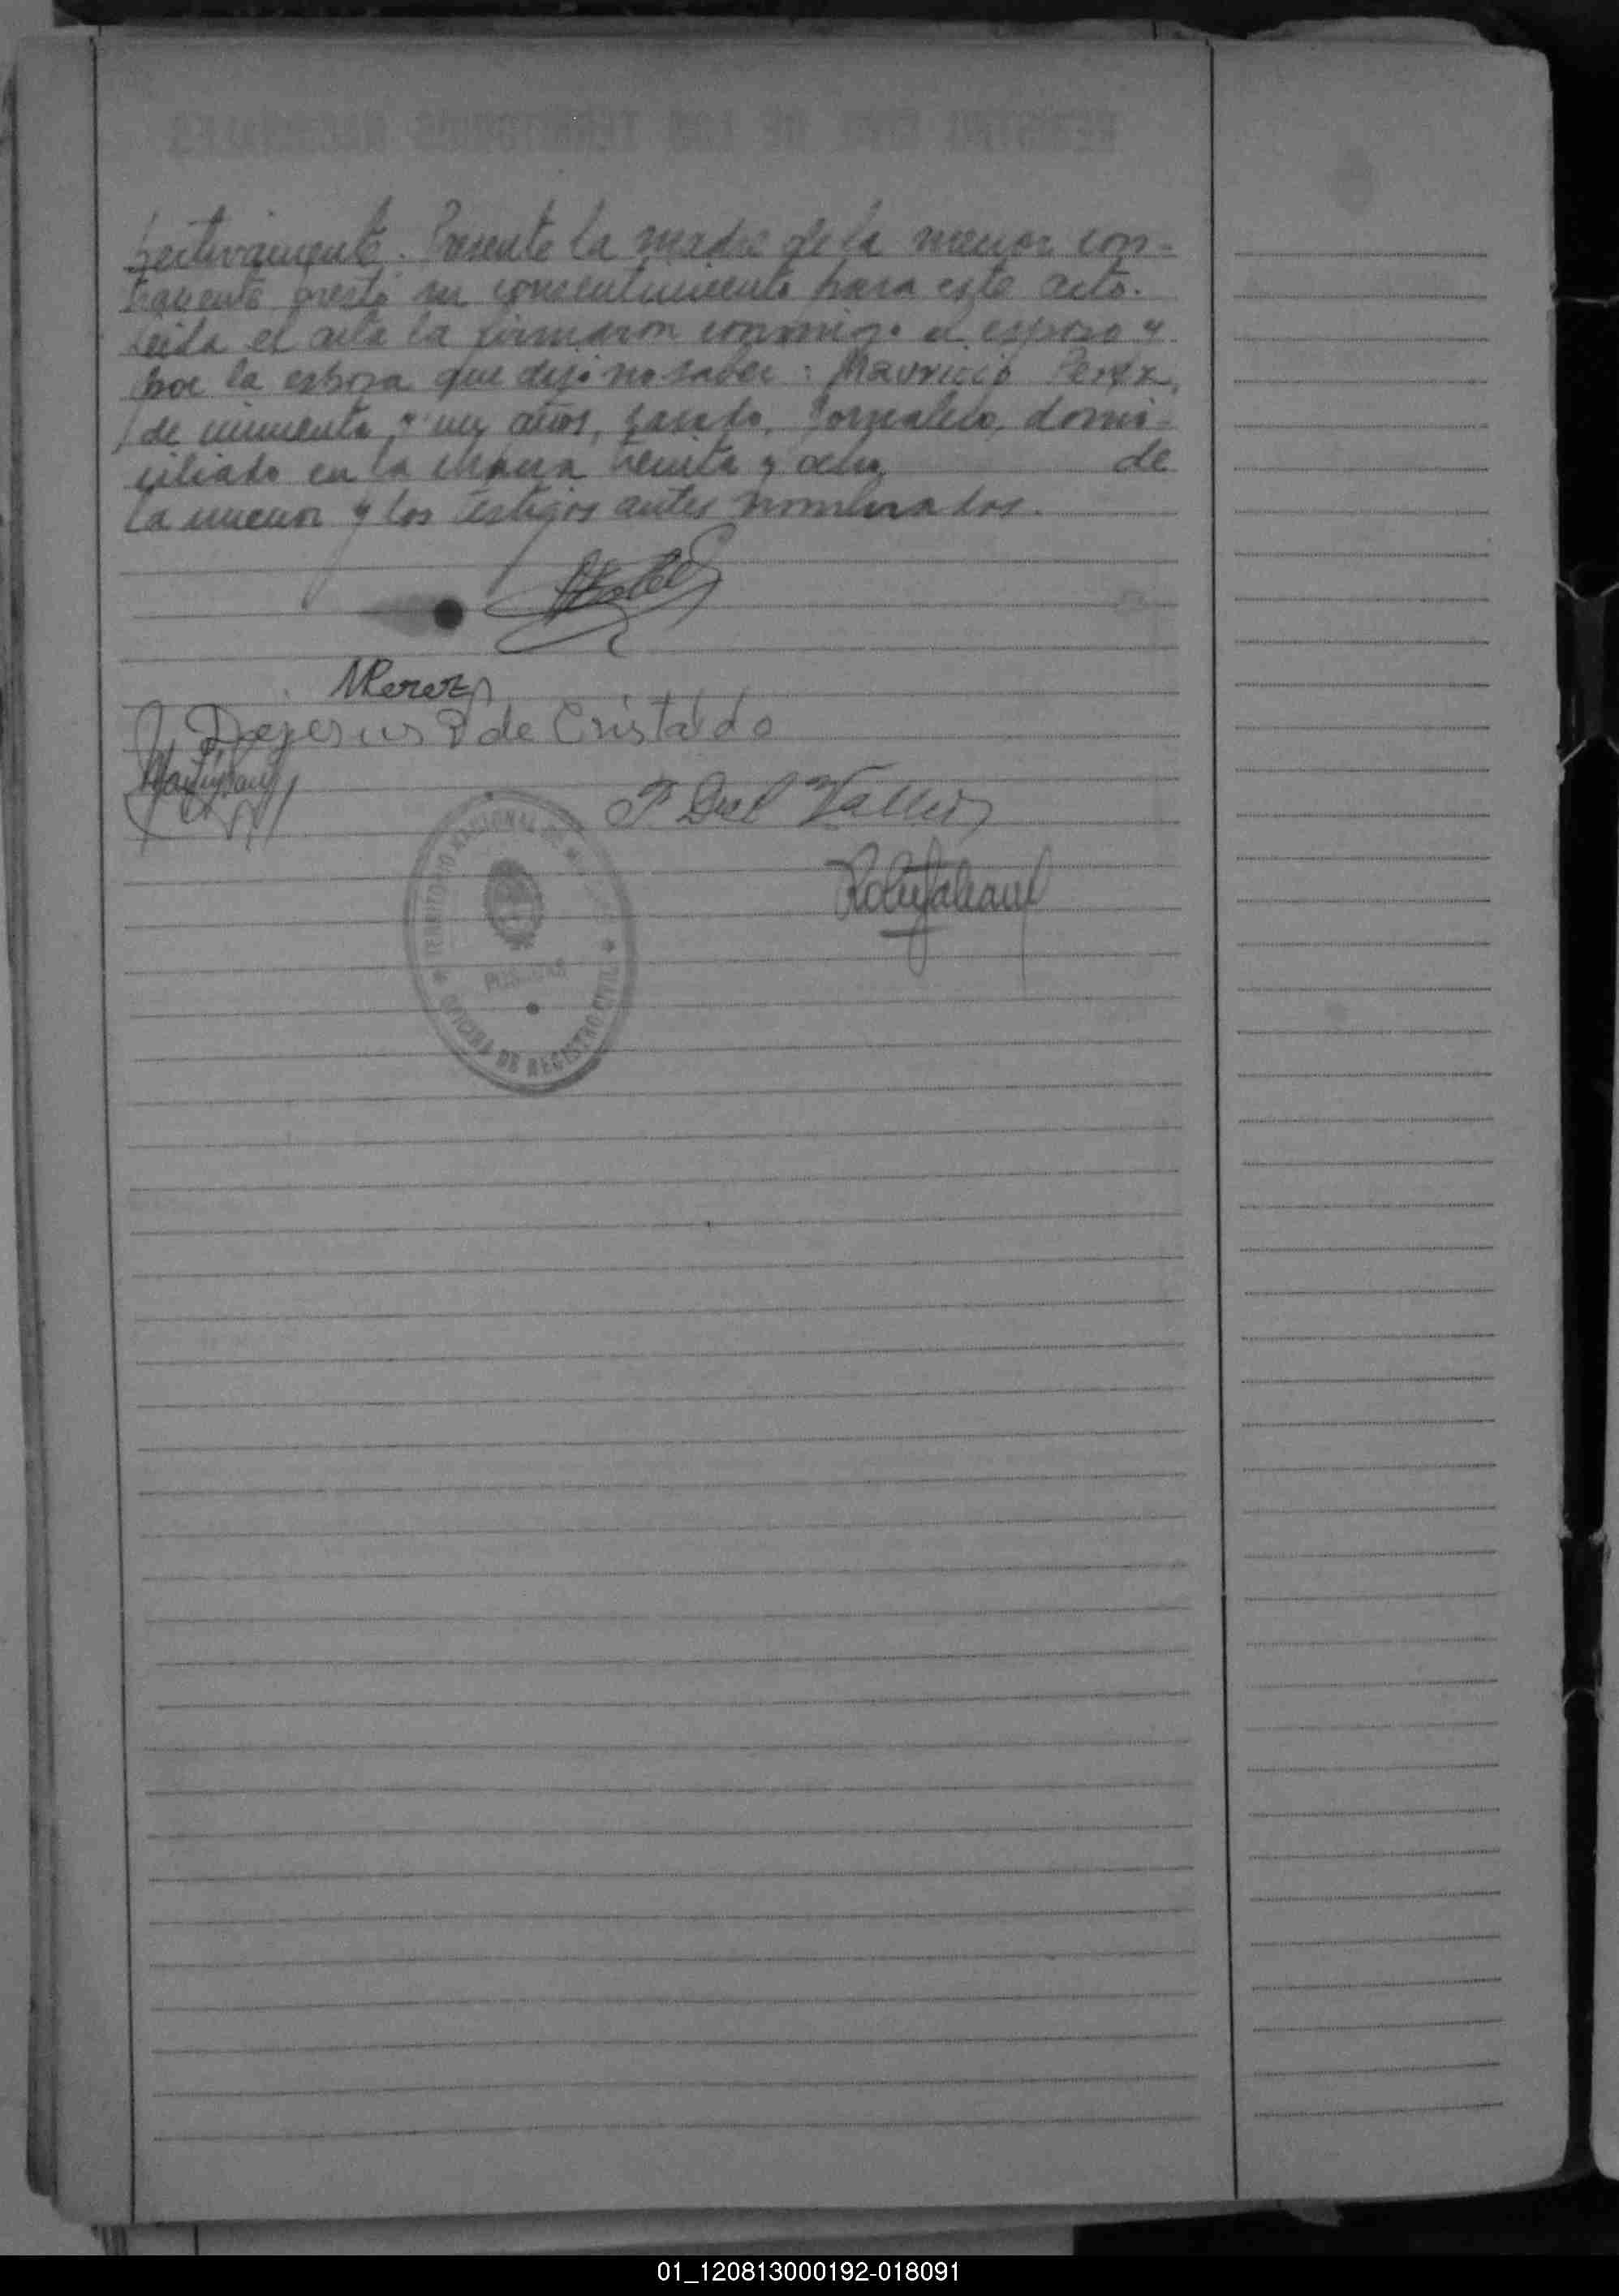 pectivamente. Presente la madre de la menor con-
trayente prestó su consentimiento para este acto.
Leida el acta la firmaron conmigo el esposo y
por la esposa que dijo no saber: Mauricio Perez,
de cincuenta y un años, casado, jornalero, domi-
ciliado en la chacra treinta y ocho de
la menor y los testigos antes nombrados.
MPerez
Dejesus P de Cristaldo
P. Del Valle
TERRITORIO NACIONAL DE MISIONES
POSADAS
OFICINA DE REGISTRO CIVIL
01_120813000192-018091